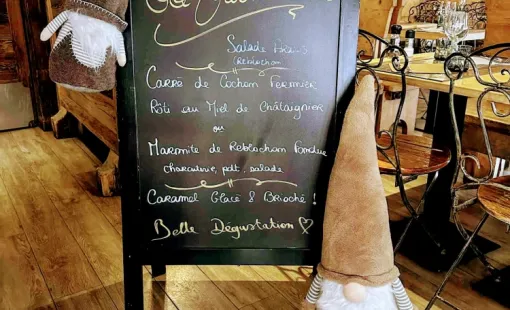 Salade
Reblochon
Carré de Cochon Fermier
Rôti au Miel de Châtaignier
ou
Marmite de Reblochon Fondue
charcuterie, pdt, salade
Caramel Glacé & Brioché !
Belle Dégustation ♡